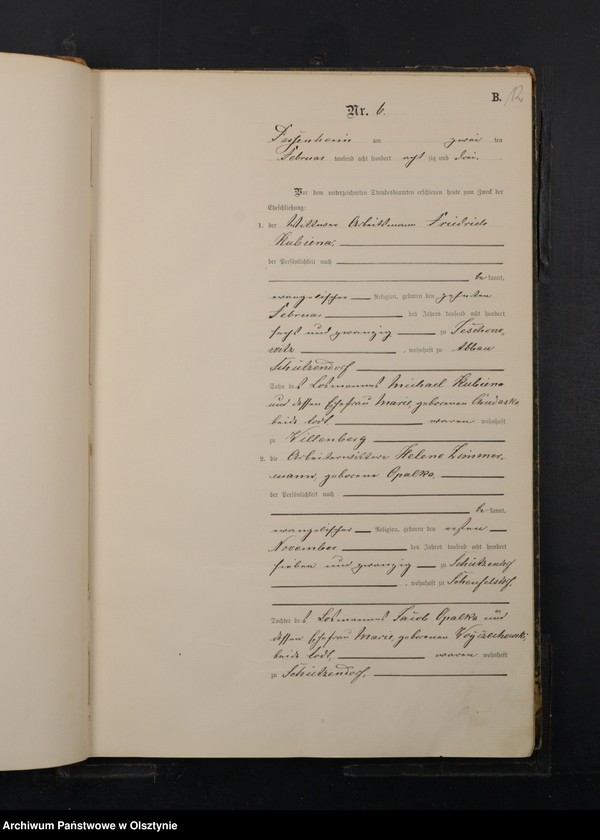 B. 12
Nr. 6.
am zwei ten
Februar tausend acht hundert acht zig und drei.
Vor dem unterzeichneten Standesbeamten erschienen heute zum Zweck der
Eheschließung:
1. der Wittwer Arbeitsmann Friedrich
Kubiena,
der Persönlichkeit nach
be kannt,
evangelischer Religion, geboren den zehnten
Februar des Jahres tausend acht hundert
sechs und zwanzig zu
witz, wohnhaft zu Abbau
Schützendorf
Sohn des Losmannes Michael Kubiena
und dessen Ehefrau Marie, geborenen
beide todt, waren wohnhaft
zu Willenberg
2. die Arbeiterwittwe Helene Zimmer-
mann, geborene Opalka,
der Persönlichkeit nach
be kannt,
evangelischer Religion, geboren den ersten
November des Jahres tausend acht hundert
sieben und zwanzig zu Schützendorf
, wohnhaft zu Scheufelsdorf,
Tochter des Losmannes Jacob Opalka und
dessen Ehefrau Marie, geborenen
beide todt, waren wohnhaft
zu Schützendorf,
Archiwum Państwowe w Olsztynie